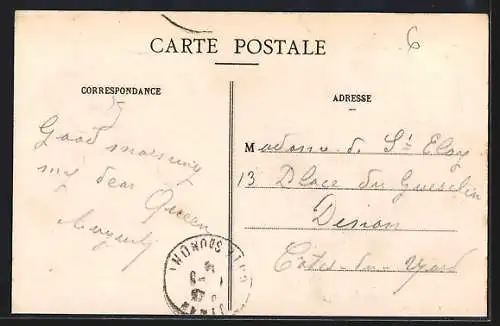 CARTE POSTALE
6
CORRESPONDANCE
ADRESSE
Good morning
my dear
Queen
Madame de St Eloy
13 Place du Guesclin
Dinan
Côtes-du-Nord